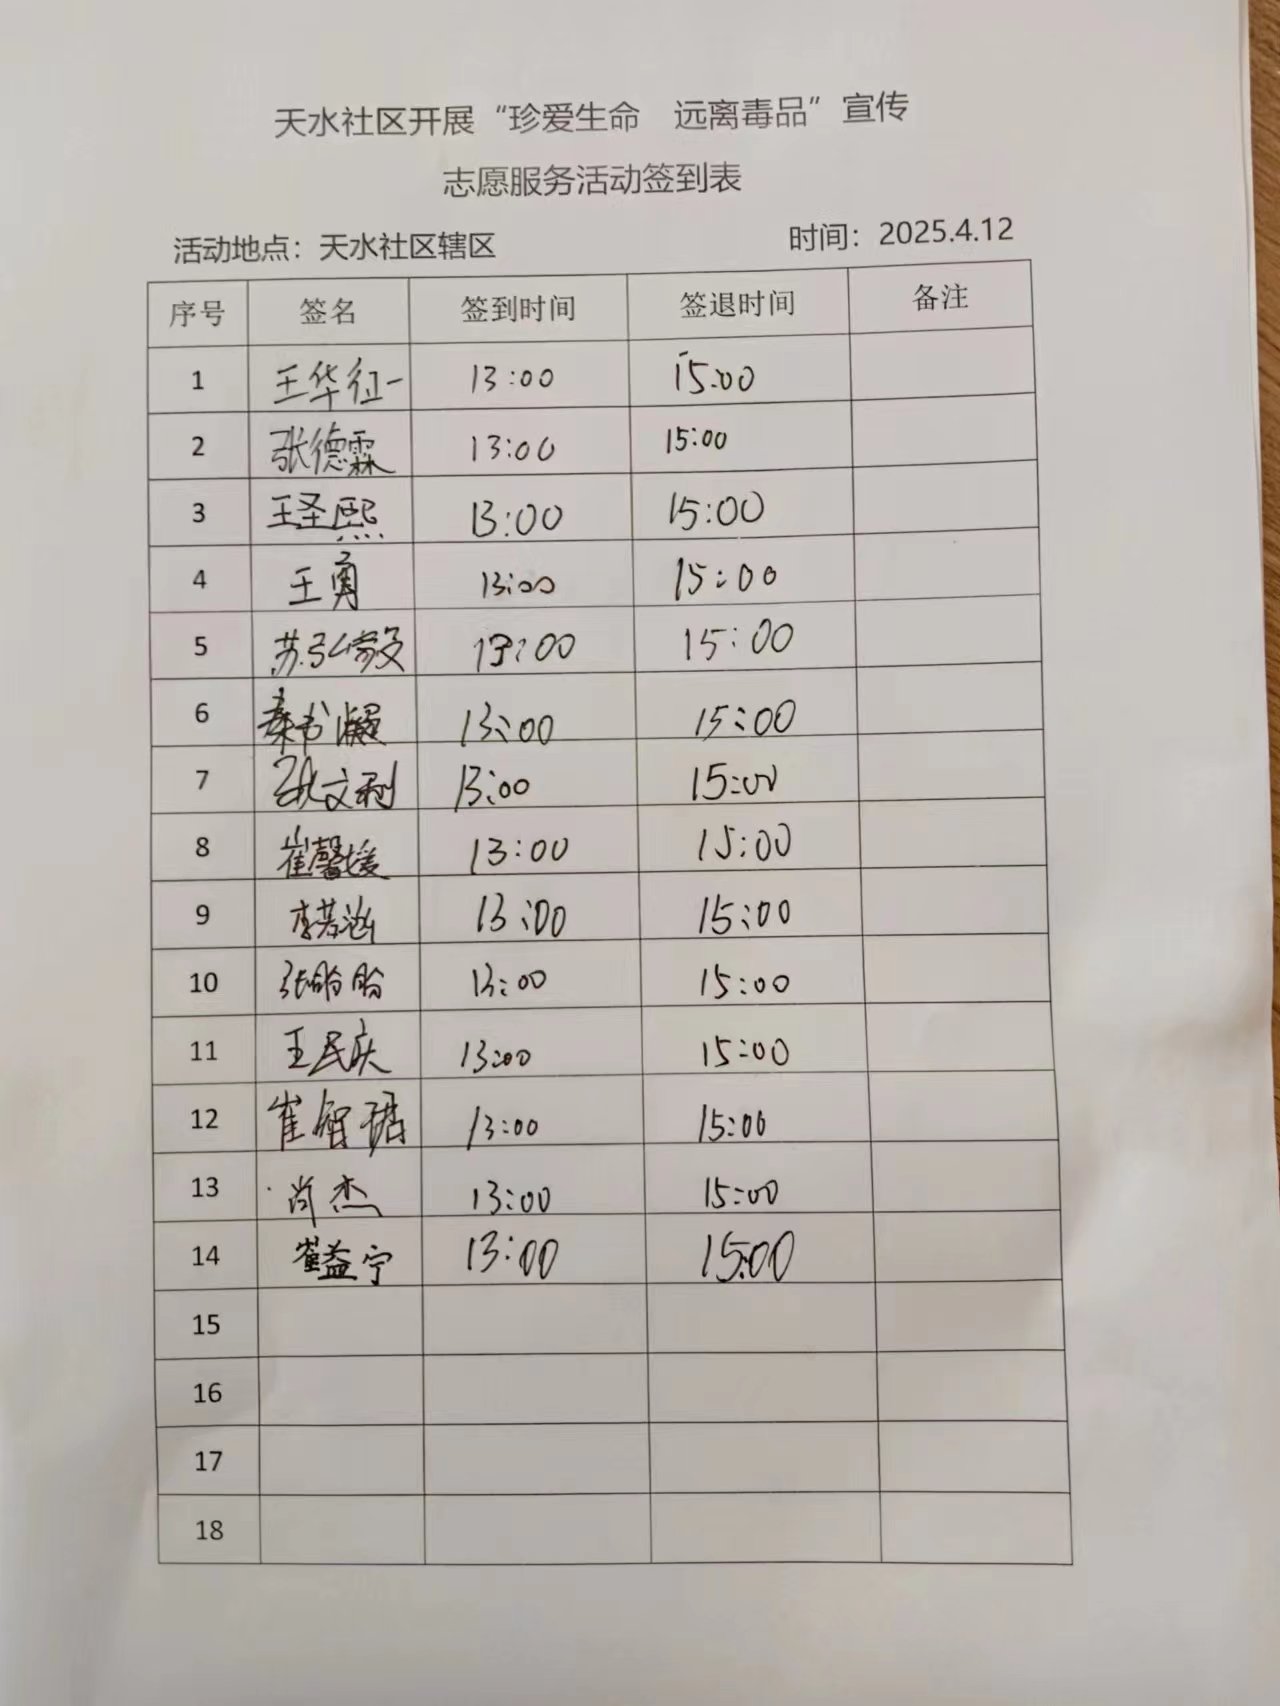 天水社区开展“珍爱生命　远离毒品”宣传
志愿服务活动签到表
活动地点：天水社区辖区 时间：2025.4.12
序号 签名 签到时间 签退时间 备注
1 王华征 13:00 15:00
2 张德霖 13:00 15:00
3 王圣熙 13:00 15:00
4 王勇 13:00 15:00
5 13:00 15:00
6 秦书凝 13:00 15:00
7 张文利 13:00 15:00
8 崔馨媛 13:00 15:00
9 李若涵 13:00 15:00
10 13:00 15:00
11 王民庆 13:00 15:00
12 13:00 15:00
13 肖杰 13:00 15:00
14 崔益宁 13:00 15:00
15
16
17
18